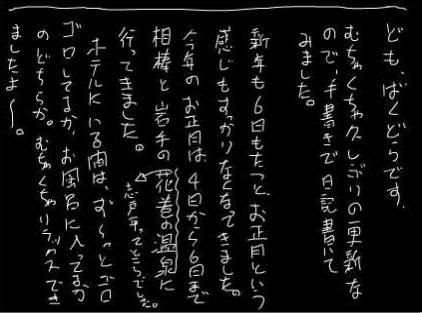 ども、ばくどらです。
むちゃくちゃ久しぶりの更新な
ので、手書きで日記書いて
みました。
新年も6日もたつと、お正月という
感じもすっかりなくなってきました。
今年のお正月は、4日から6日まで
相棒と岩手の花巻の温泉に
行ってきました。
志戸平ってところでした。
ホテルにいる間は、ずーっとゴロ
ゴロしてるか、お風呂に入ってるか
のどちらか。むちゃくちゃリラックスでき
ましたよ〜。